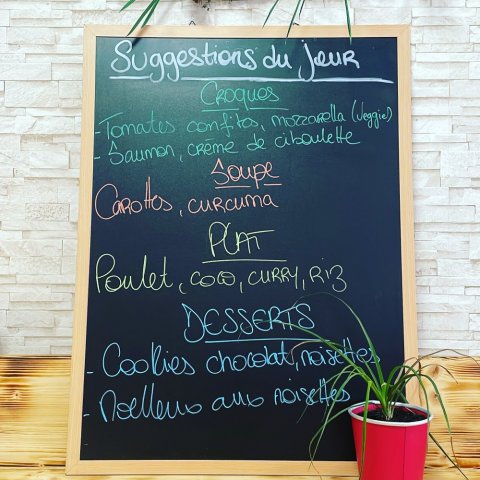 Suggestions du jour
Croques
- Tomates confites, mozzarella (Veggie)
- Saumon, crème de ciboulette
Soupe
Carottes, curcuma
PLAT
Poulet, coco, curry, riz
DESSERTS
- Cookies chocolat, noisettes
- Moelleux aux noisettes